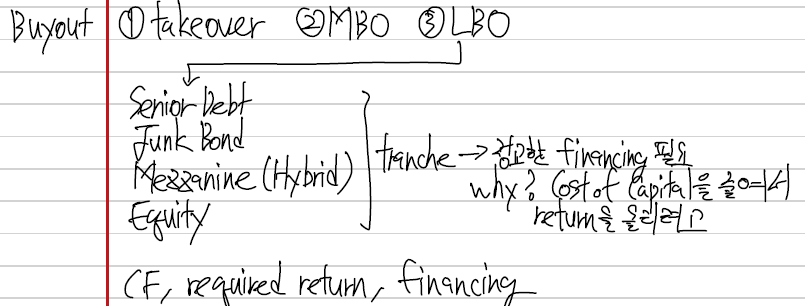 Buyout ① takeover ② MBO ③ LBO
Senior Debt
Junk Bond
Mezzanine (Hybrid)
Equity
tranche → 정교한 financing 필요
why? Cost of Capital을 줄여서
return을 올리려고
CF, required return, financing